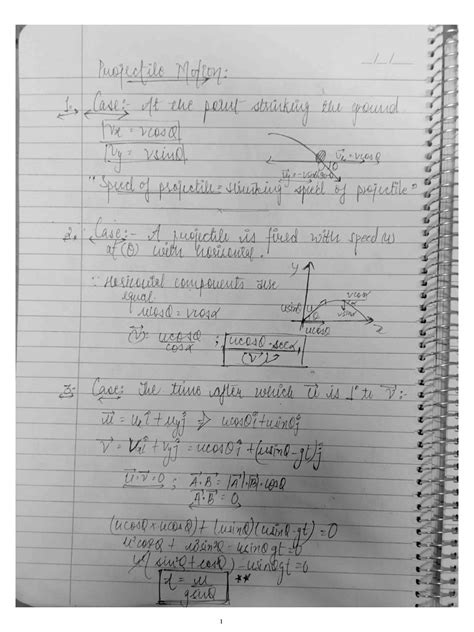 Projectile Motion:
__/__/__
1. Case:- At the point striking the ground
Vx = vcosθ
Vy = vsinθ
"Speed of projectile = striking speed of projectile"
2. Case:- A projectile is fired with speed u
at (θ) with horizontal.
∵ Horizontal components are
equal.
ucosθ = vcosα
(v⃗): ucosθ/cosα ; ucosθ·secα
(v⃗)
y
usinθ
u
θ
vcosα
vsinα
ucosθ
x
3. Case: The time after which u⃗ is ⊥r to v⃗:-
u⃗ = uxî + uyĵ => ucosθî + usinθĵ
v⃗ = vxî + vyĵ = ucosθî + (usinθ - gt)ĵ
u⃗·v⃗ = 0 ; A⃗·B⃗ = |A⃗|·|B⃗|·cosθ
A⃗·B⃗ = 0
(ucosθ × ucosθ) + (usinθ)(usinθ - gt) = 0
u²cos²θ + u²sin²θ - usinθgt = 0
u²(sin²θ + cos²θ) - usinθgt = 0
t = u/gsinθ **
1